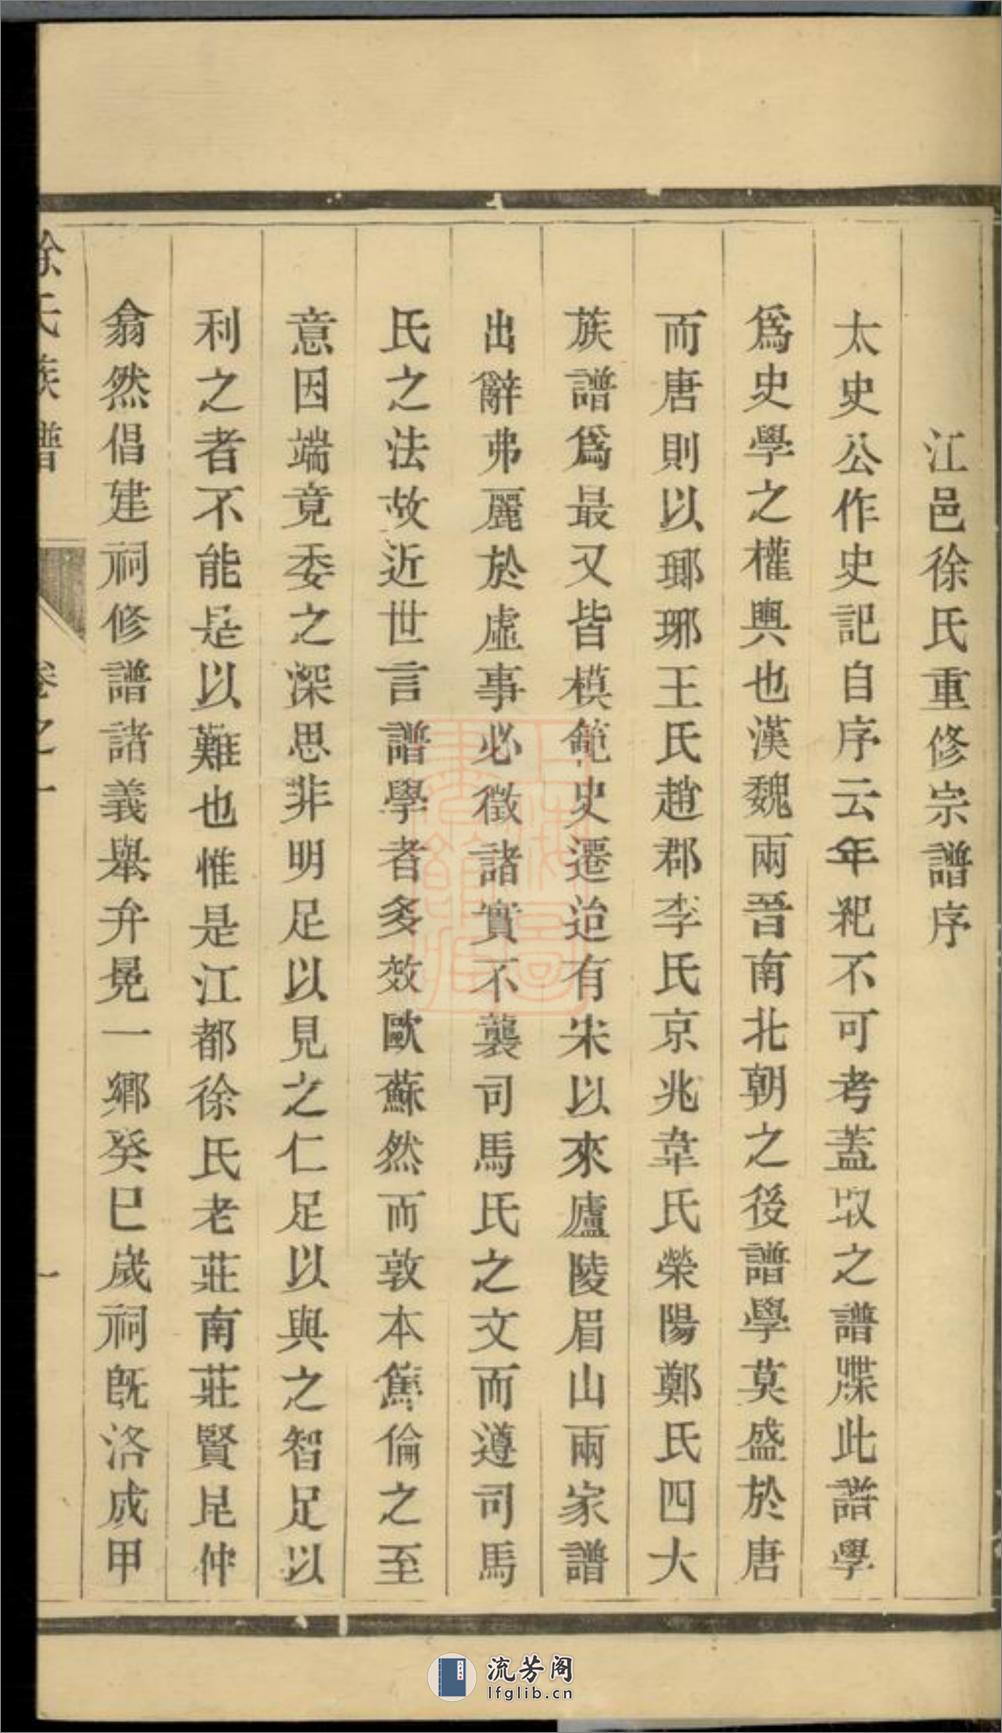 江邑徐氏重修宗譜序
太史公作史記自序云年𥝩不可考蓋取之譜牒此譜學
爲史學之權輿也漢魏兩晉南北朝之後譜學莫盛於唐
而唐則以瑯琊王氏趙郡李氏京兆韋氏榮陽鄭氏四大
族譜爲最又皆模範史遷迨有宋以來廬陵眉山兩家譜
出辭弗麗於虛事必徵諸實不襲司馬氏之文而遵司馬
氏之法故近世言譜學者多效歐蘇然而敦本篤倫之至
意因端竟委之深思非明足以見之仁足以與之智足以
利之者不能是以難也惟是江都徐氏老莊南莊賢昆仲
翕然倡建祠修譜諸義舉弁冕一鄉癸巳歲祠旣洛成甲
徐氏族譜 卷之一 一
流芳阁
lfglib.cn